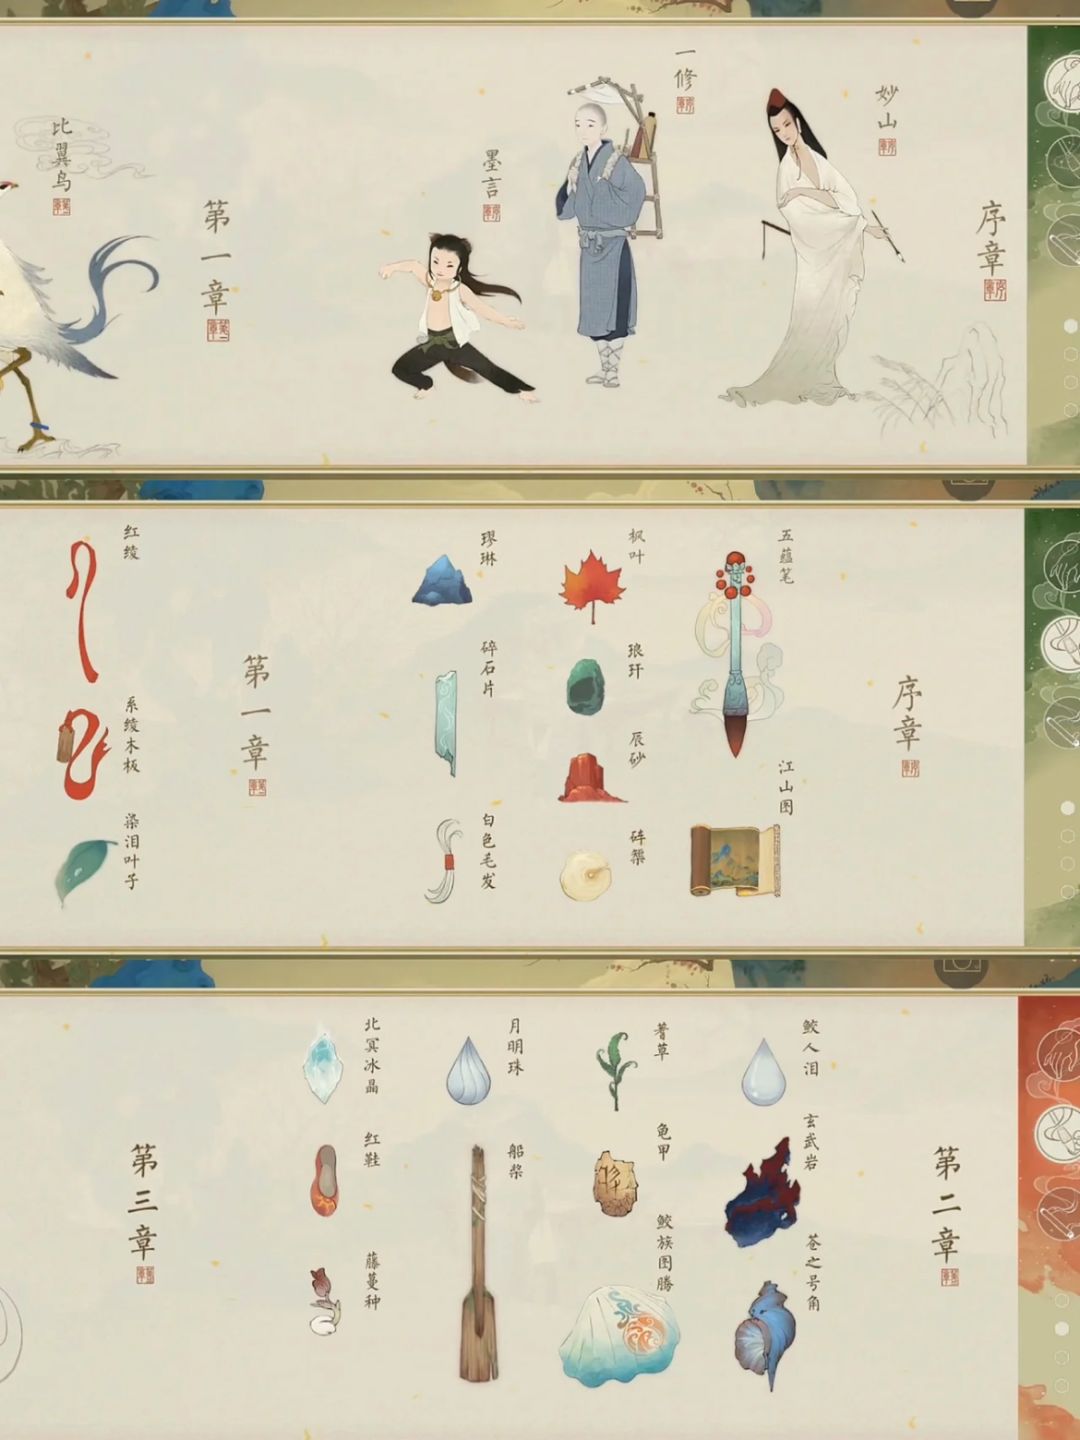 序章
妙山
一修
墨言
第一章
比翼鸟
序章
五蕴笔
江山图
枫叶
琅玕
辰砂
砗磲
璆琳
碎石片
白色毛发
第一章
红绫
系绫木板
染泪叶子
第二章
鲛人泪
玄武岩
苍之号角
蓍草
龟甲
鲛族图腾
月明珠
船桨
北冥冰晶
红鞋
藤蔓种
第三章